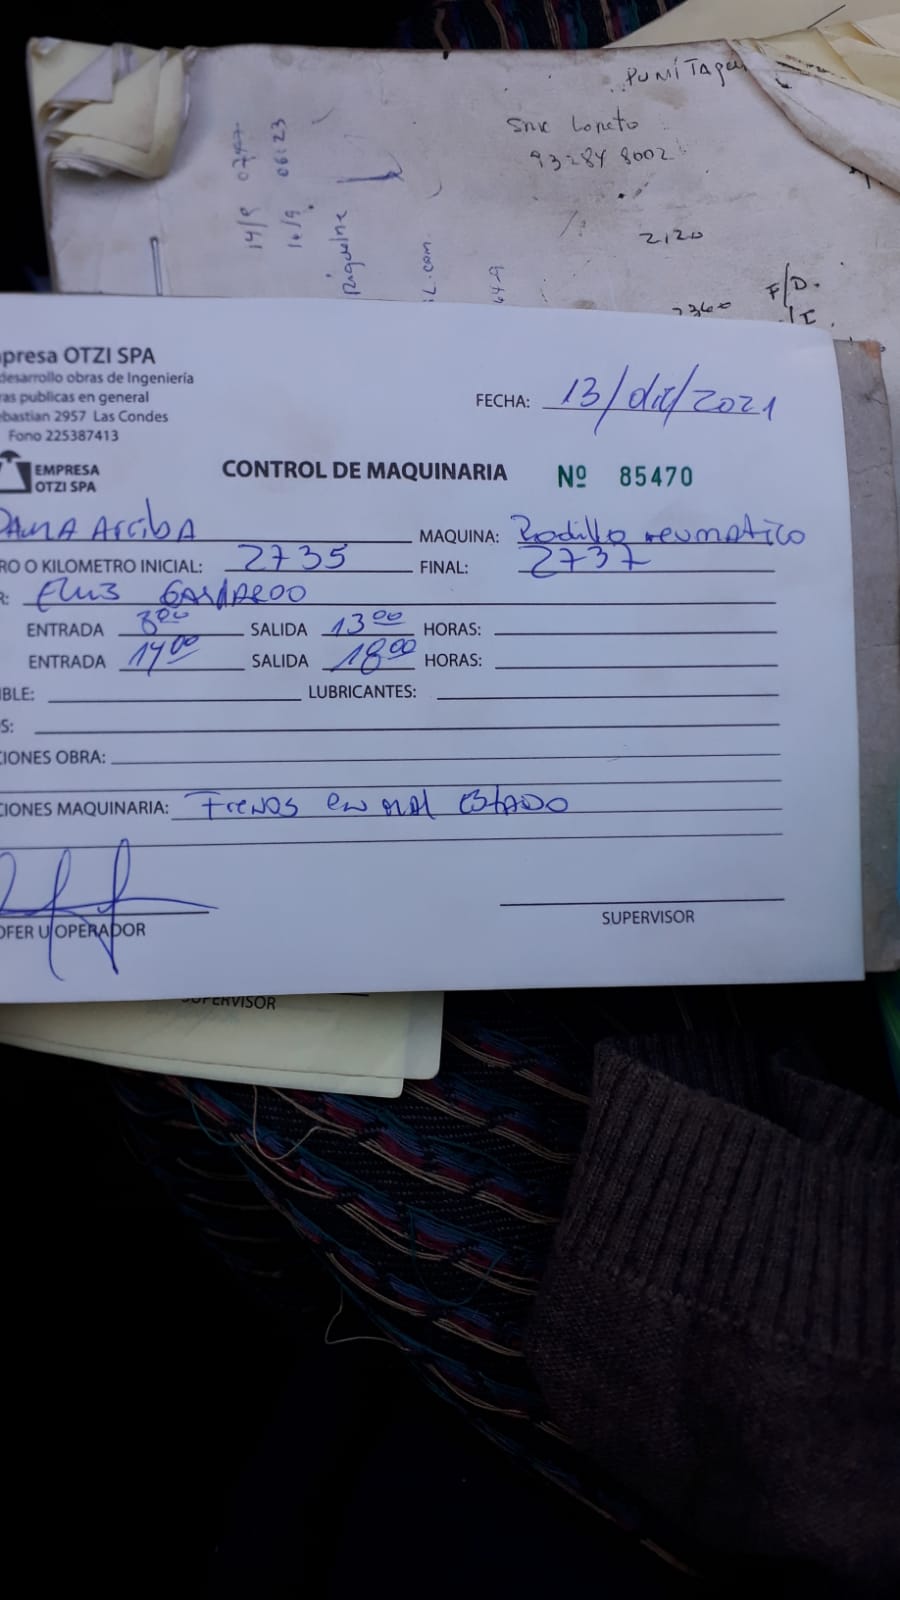 PUNITAQUI
Snr Loreto
93284 8002
2120
F/D.
14/9
06:23
Riquelme
iL.com.
presa OTZI SPA
desarrollo obras de Ingeniería
ras publicas en general
ebastian 2957 Las Condes
Fono 225387413
FECHA: 13/dic/2021
EMPRESA
OTZI SPA
CONTROL DE MAQUINARIA Nº 85470
Arriba MAQUINA: Rodillo neumatico
RO O KILOMETRO INICIAL: 2735 FINAL: 2737
R: GAJARDO
ENTRADA 8:00 SALIDA 13:00 HORAS:
ENTRADA 14:00 SALIDA 18:00 HORAS:
IBLE: LUBRICANTES:
S:
CIONES OBRA:
CIONES MAQUINARIA: Frenos en mal estado
OFER U OPERADOR
SUPERVISOR
SUPERVISOR